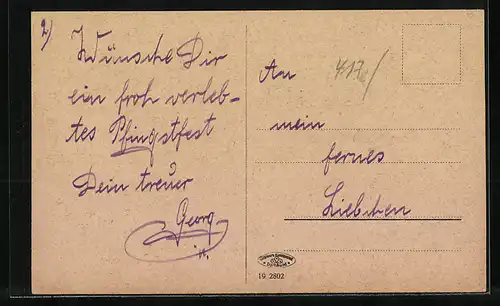 2)
Wünsche Dir
ein froh verleb-
tes Pfingstfest
Dein treuer
Georg
An
mein
fernes
Liebchen
19 2802